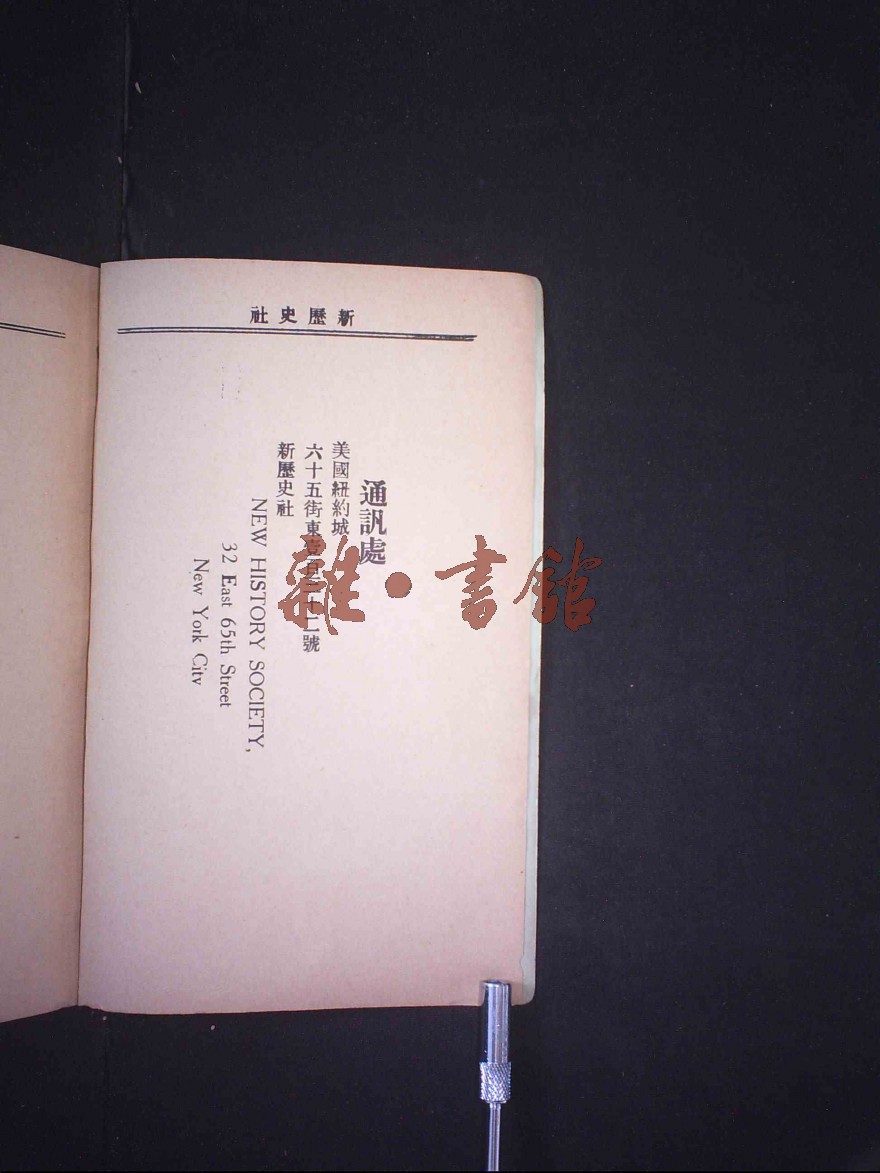 新歷史社
通訊處
美國紐約城
六十五街東百十二號
新歷史社
NEW HISTORY SOCIETY,
32 East 65th Street
New York City
雜·書館